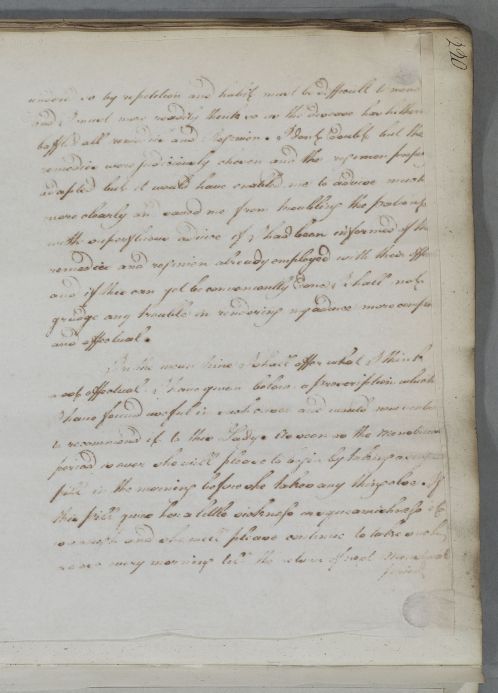 290
so by repetition and habit must be difficult to
and I must more readily think so as the disease has hither
baffled all remedies and regimen. I dont doubt but the
remedies were judiciously chosen and the regimen proper
adapted but it would have enabled me to advise much
more clearly and saved me from troubling the patient
with superfluous advice if I had been informed of the
remedies and regimen already employed with their effe
and if this can yet be conveniently done I shall not
grudge any trouble in rendering my advice more
and effectual.
In the mean time I shall offer what I think
most effectual. I have given below a prescription which
I have found useful in such cases and would now
to recommend it to this Lady. As soon as the menstrual
period is over she will please to begin by taking a
pill in the morning before she takes any thing else. If
this pill give her a little sickness or squeamishness
and she will please continue to take
every morning till the return of next Menstrual
period